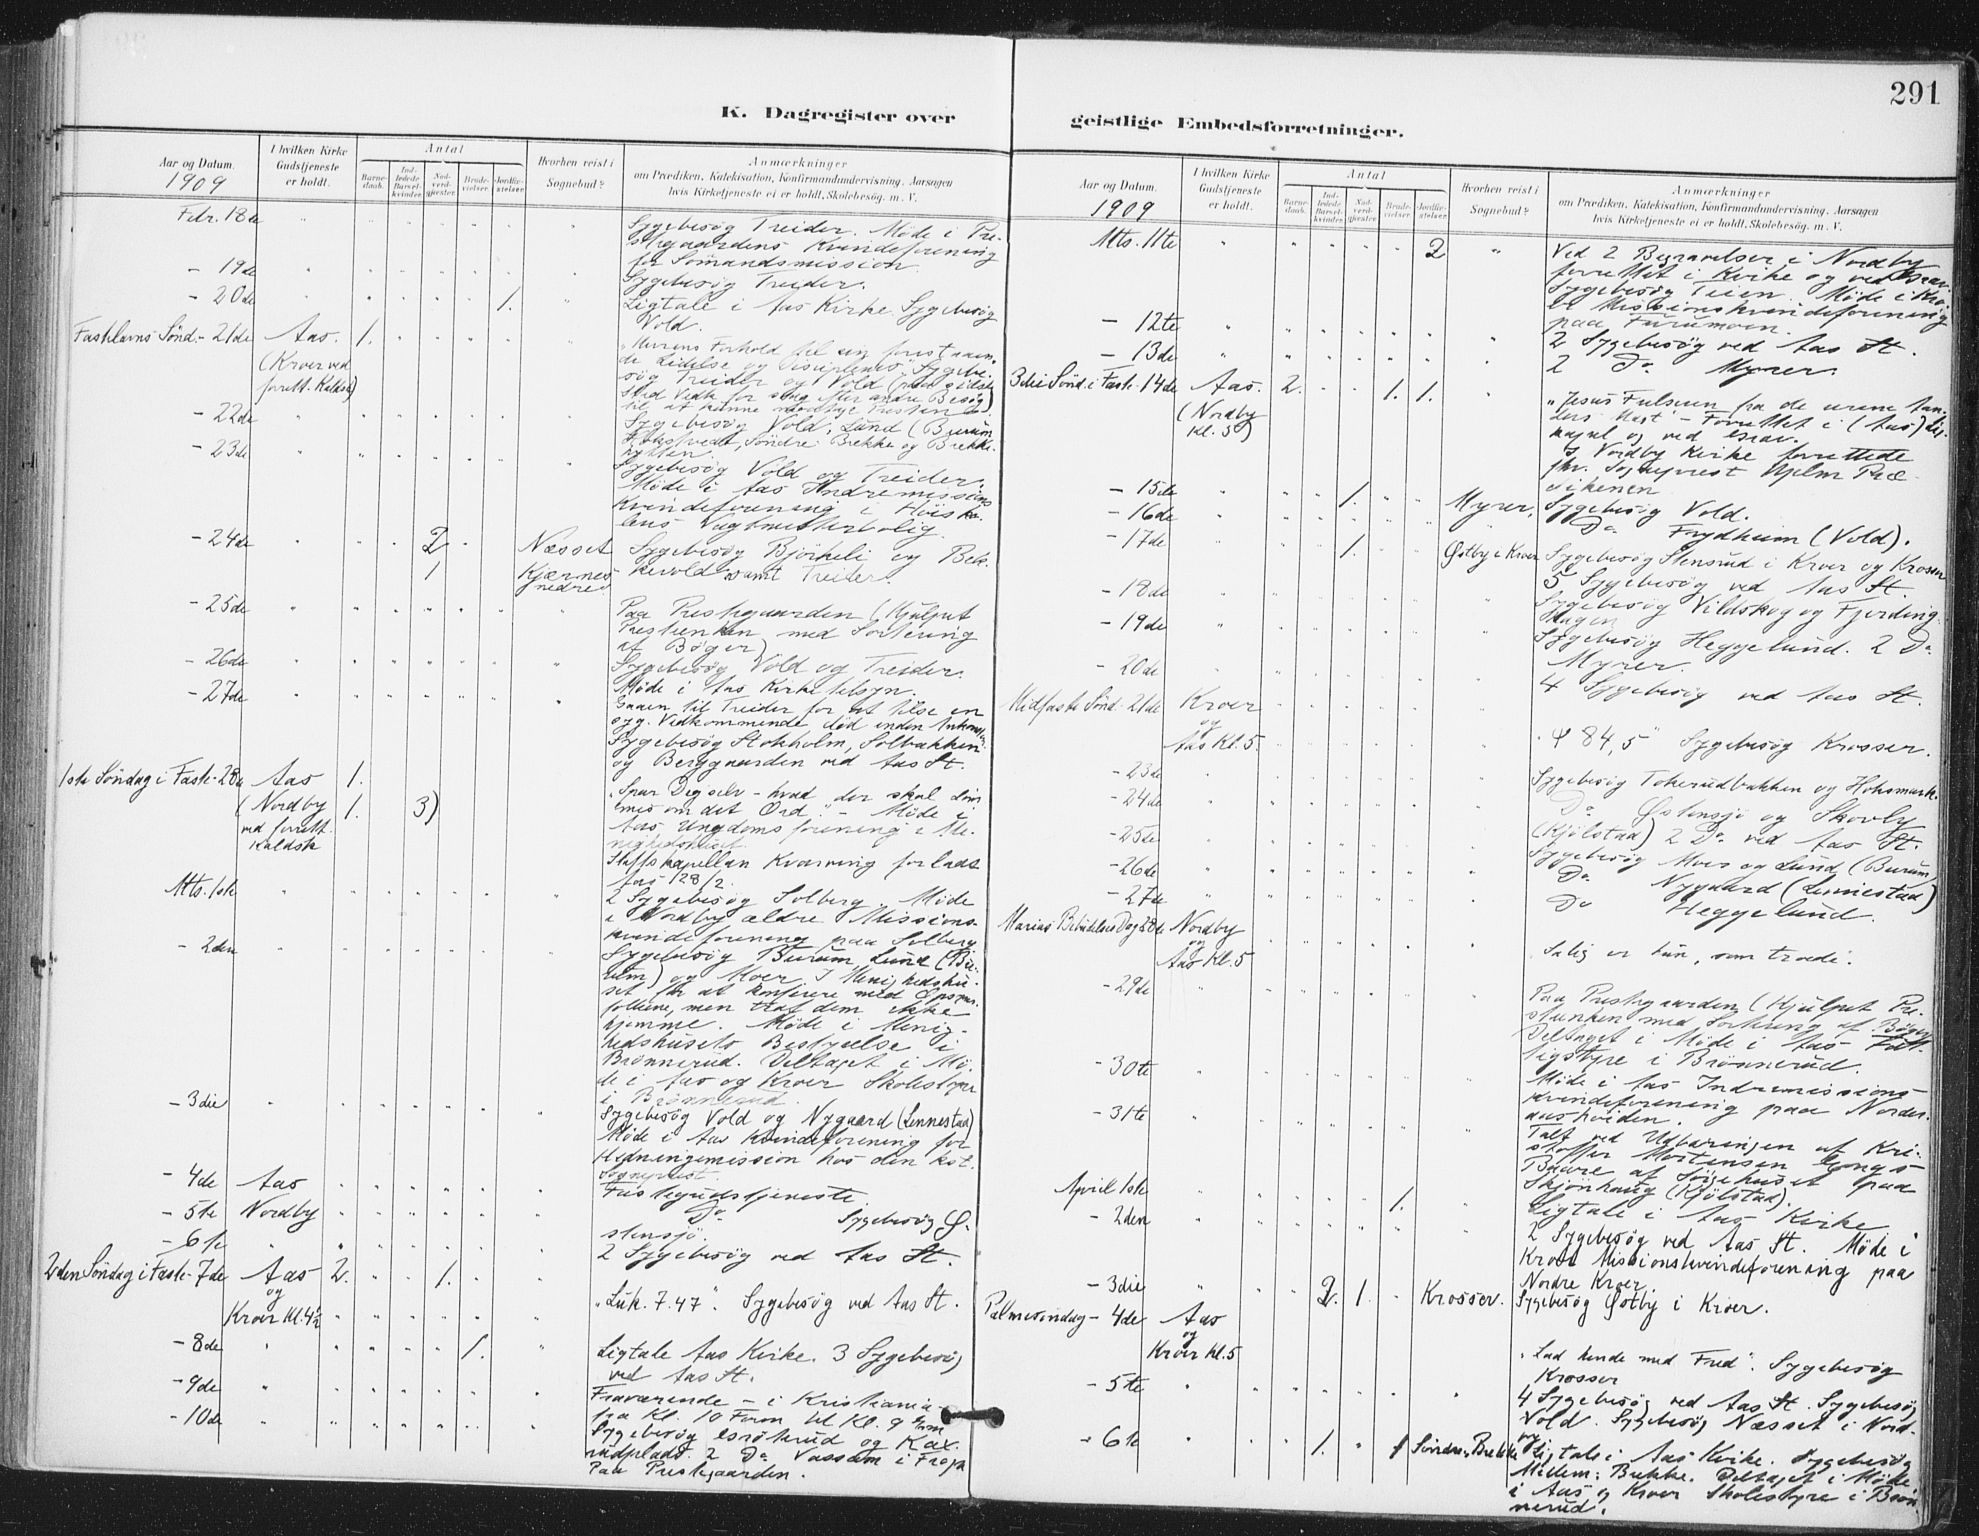 291
K. Dagregister over
geistlige Embedsforretninger.
Aar og Datum.
1909
I hvilken Kirke Gudstjeneste er holdt.
Antal
Barnedaab.
Indledede Barselkvinder.
Nadverdgjester.
Brudevielser.
Jordfæstelser.
Hvorhen reist i Sognebud?
Anmærkninger
om Prædiken, Katekisation, Konfirmandundervisning. Aarsagen
hvis Kirketjeneste ei er holdt, Skolebesøg. m. V.
Febr. 18de
Sygebesög Treider. Möde i Pre-
stegaardens Kvindeforening
for Sömandsmission
- 19de
Sygebesög Treider.
- 20de 1.
Ligtale i Aas Kirke. Sygebesög
Vold.
Fastelavns Sönd. - 21de Aas. 1.
(Kroer ved
forrett. Kaldsk.)
- 22de
Sygebesög Vold, Lund (Burum
- 23de
Sygebesög Vold og Treider.
Möde i Aas Indremissions
Kvindeforening i Höisko-
lens Vagtmesterbolig.
- 24de 2 Næsset
Sygebesög Björkeli og Bek-
1 Kjærnes nedre
kevold samt Treider.
- 25de
Paa Prestegaarden (Hjulput
Prestenken med Sortering
af Böger)
- 26de
Sygebesög Vold og Treider.
Möde i Aas Kirketilsyn.
- 27de
Gaaen til Treider for at tilse en
syg. Vedkommende död inden Ankomsten.
Sygebesög Stokholm, Solbakken
og Berggaarden ved Aas St.
1ste Söndag i Faste - 28de Aas 1.
(Nordby 1. 3)
ved forrett.
Kaldsk
"Spar Dig selv - hvad der skal döm
mes om det Ord." - Möde i
Aas Ungdomsforening i Me-
nighedshuset
Stiftskapellan Kvarving forlader
Aas 28/2.
Mts. 1ste
2 Sygebesög Solberg. Möde
i Nordby ældre Missions-
kvindeforening paa Solberg
- 2den
Sygebesög Burum, Lund (Bu-
rum) og Moer. I Menighedshu-
set for at konferere med Opsyns-
folkene, men traf dem ikke
hjemme. Möde i Menig-
hedshusets Bestyrelse i
Brönnerud. Deltaget i Mö-
de i Aas og Kroer Skolestyre
i Brönnerud.
- 3die
Sygebesög Vold og Nygaard (Lennestad)
Möde i Aas Kvindeforening for
Hedningemission hos den kst.
Sogneprest.
- 4de Aas
Fastegudstjeneste
- 5te Nordby
Do Sygebesög Ö-
stensjö.
- 6te
2 Sygebesög ved Aas St.
2den Söndag i Faste - 7de Aas 2. 1.
og
Kroer Kl. 4½
"Luk. 7.47". Sygebesög ved Aas St.
- 8de 1.
Ligtale Aas Kirke. 3 Sygebesög
ved Aas St.
- 9de
Fraværende - i Kristiania -
fra Kl. 10 Form til Kl. 9 Em
- 10de
Paa Prestegaarden.
Aar og Datum.
1909
I hvilken Kirke Gudstjeneste er holdt.
Antal
Barnedaab.
Indledede Barselkvinder.
Nadverdgjester.
Brudevielser.
Jordfæstelser.
Hvorhen reist i Sognebud?
Anmærkninger
om Prædiken, Katekisation, Konfirmandundervisning. Aarsagen
hvis Kirketjeneste ei er holdt, Skolebesög. m. V.
Mts. 11te 2
Ved 2 Begravelser i Nordby
forrettet i Kirke og ved Grav.
Sygebesög Teien. Möde i Kro-
er Missionskvindeforening
paa Furumoen.
- 12te
2 Sygebesög ved Aas St.
- 13de
2 Do Myrer.
3die Sönd. i Faste - 14de Aas. 2. 1. 1.
(Nordby
Kl. 5)
"Jesus Fulsuen fra de urene Aan-
ders Magt" - Forrettet i (Aas)
kapel og ved Grav.
I Nordby Kirke forrettede
fhv. Sogneprest
- 15de 1. Myrer.
Sygebesög Vold.
- 16de
Do Frydheim (Vold).
- 17de 1. Östby i Kroer
Sygebesög Stensrud i Kroer og Krosser
- 18de
5 Sygebesög ved Aas St.
- 19de
Sygebesög Vildskog og Fjerding-
hagen
- 20de
Sygebesög Heggelund. 2 Do
Myrer.
4 Sygebesög ved Aas St.
Midfaste Sönd. 21de Kroer
og
Aas Kl. 5
"ψ 84,5" Sygebesög Krosser.
- 23de
Sygebesög Tokerudbakken og Holsmark.
- 24de
Do Östensjö og Skovly
(Kjölstad) 2 Do ved Aas St.
- 25de
Sygebesög Moer og Lund (Burum)
- 26de
Do Nygaard (Lennestad)
- 27de
Do Heggelund.
Marias Bebudelses Dag 28de Nordby
og
Aas Kl. 5
"Salig er hun, som troede".
- 29de
Paa Prestegaarden (Hjulpet Pre-
stenken med Sortering af Böger)
Deltaget i Möde i Aas Fat-
tigstyre i Brönnerud.
- 30te
Möde i Aas Indremissions-
kvindeforening paa Nordre
- 31te
Talt ved Udbaringen af Kri-
stoffer Mortensen
Baare af Sörgehuset paa
Skjönhaug (Kjölstad).
April 1ste 1.
Ligtale i Aas Kirke
- 2den
2 Sygebesög ved Aas St. Möde i
Kroer Missionskvindeforening paa
Nordre Kroer
- 3die 2. 1. Krosser.
Sygebesög Östby i Kroer.
Palmesöndag - 4de Aas
og
Kroer Kl. 5
"Lad hende med Fred". Sygebesög
Krosser
- 5te
4 Sygebesög ved Aas St. Sygebesög
Vold. Sygebesög Næsset i Nord-
by
- 6te 1. 1 Söndre Brekke
Ligtale i Aas Kirke. Sygebesög
Mellem: Brekke. Deltaget i Möde
i Aas og Kroer Skolestyre i Brön-
nerud.